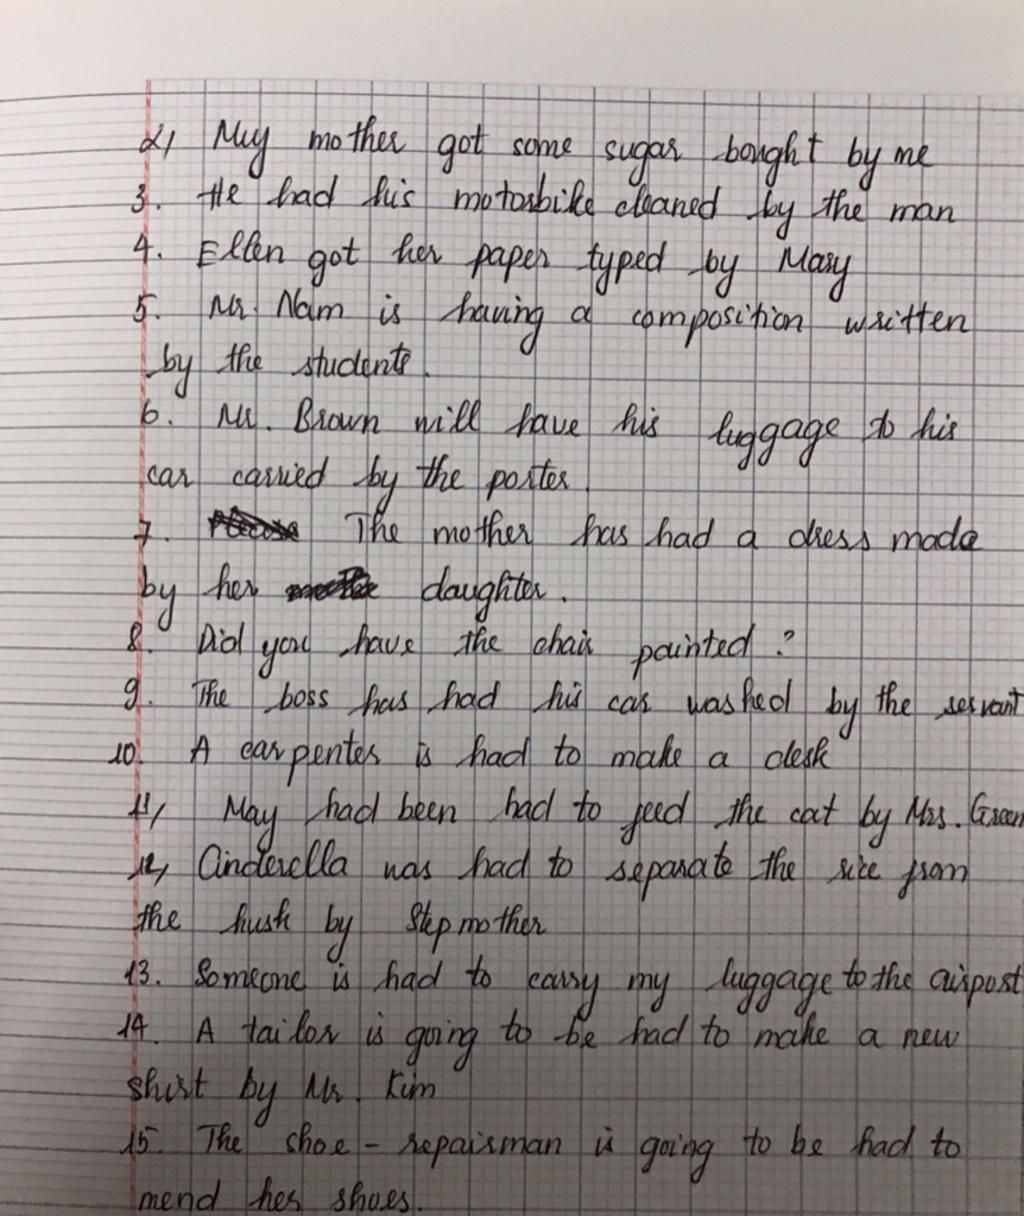 2, My mother got some sugar bought by me
3. He had his motorbike cleaned by the man
4. Ellen got her paper typed by Mary
5. Mr. Nam is having a composition written
by the students.
6. Mr. Brown will have his luggage to his
car carried by the porter.
7. The mother has had a dress made
by her daughter.
8. Did you have the chair painted?
9. The boss has had his car washed by the servant
10. A carpenter is had to make a desk
11, May had been had to feed the cat by Mrs. Green
12, Cinderella was had to separate the rice from
the husk by Stepmother
13. Someone is had to carry my luggage to the airport
14. A tailor is going to be had to make a new
shirt by Mr. Kim
15. The shoe - repairman is going to be had to
mend her shoes.